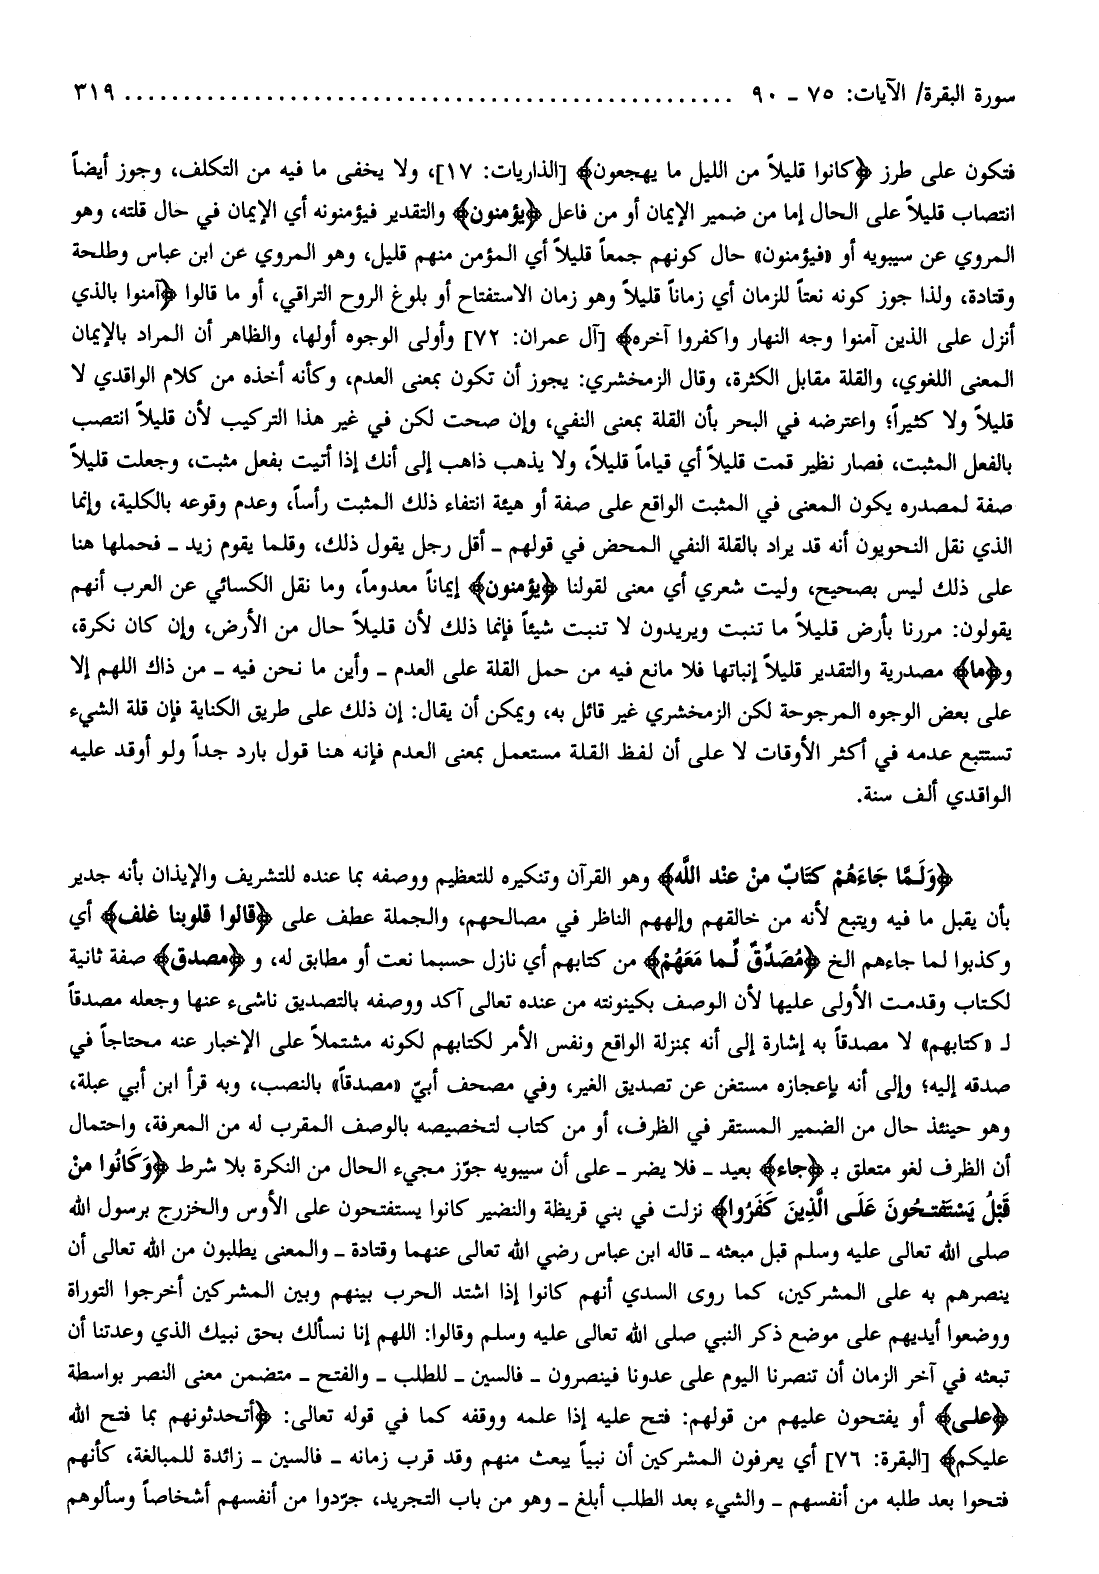 سورة البقرة/ الآيات: ٧٥ ـ ٩٠ .................................................. ٣١٩
فتكون على طرز ﴿كانوا قليلاً من الليل ما يهجعون﴾ [الذاريات: ١٧]، ولا يخفى ما فيه من التكلف، وجوز أيضاً
انتصاب قليلاً على الحال إما من ضمير الإيمان أو من فاعل ﴿يؤمنون﴾ والتقدير فيؤمنونه أي الإيمان في حال قلته، وهو
المروي عن سيبويه أو «فيؤمنون» حال كونهم جمعاً قليلاً أي المؤمن منهم قليل، وهو المروي عن ابن عباس وطلحة
وقتادة، ولذا جوز كونه نعتاً للزمان أي زماناً قليلاً وهو زمان الاستفتاح أو بلوغ الروح التراقي، أو ما قالوا ﴿آمنوا بالذي
أنزل على الذين آمنوا وجه النهار واكفروا آخره﴾ [آل عمران: ٧٢] وأولى الوجوه أولها، والظاهر أن المراد بالإيمان
المعنى اللغوي، والقلة مقابل الكثرة، وقال الزمخشري: يجوز أن تكون بمعنى العدم، وكأنه أخذه من كلام الواقدي لا
قليلاً ولا كثيراً؛ واعترضه في البحر بأن القلة بمعنى النفي، وإن صحت لكن في غير هذا التركيب لأن قليلاً انتصب
بالفعل المثبت، فصار نظير قمت قليلاً أي قياماً قليلاً، ولا يذهب ذاهب إلى أنك إذا أتيت بفعل مثبت، وجعلت قليلاً
صفة لمصدره يكون المعنى في المثبت الواقع على صفة أو هيئة انتفاء ذلك المثبت رأساً، وعدم وقوعه بالكلية، وإنما
الذي نقل النحويون أنه قد يراد بالقلة النفي المحض في قولهم ـ أقل رجل يقول ذلك، وقلما يقوم زيد ـ فحملها هنا
على ذلك ليس بصحيح، وليت شعري أي معنى لقولنا ﴿يؤمنون﴾ إيماناً معدوماً، وما نقل الكسائي عن العرب أنهم
يقولون: مررنا بأرض قليلاً ما تنبت ويريدون لا تنبت شيئاً فإنما ذلك لأن قليلاً حال من الأرض، وإن كان نكرة،
و﴿ما﴾ مصدرية والتقدير قليلاً إنباتها فلا مانع فيه من حمل القلة على العدم ـ وأين ما نحن فيه ـ من ذاك اللهم إلا
على بعض الوجوه المرجوحة لكن الزمخشري غير قائل به، ويمكن أن يقال: إن ذلك على طريق الكناية فإن قلة الشيء
تستتبع عدمه في أكثر الأوقات لا على أن لفظ القلة مستعمل بمعنى العدم فإنه هنا قول بارد جداً ولو أوقد عليه
الواقدي ألف سنة.
﴿وَلَمَّا جَاءَهُمْ كتَابٌ منْ عنْد اللَّه﴾ وهو القرآن وتنكيره للتعظيم ووصفه بما عنده للتشريف والإيذان بأنه جدير
بأن يقبل ما فيه ويتبع لأنه من خالقهم وإلههم الناظر في مصالحهم، والجملة عطف على ﴿قالوا قلوبنا غلف﴾ أي
وكذبوا لما جاءهم الخ ﴿مُصَدِّقٌ لِّما مَعَهُمْ﴾ من كتابهم أي نازل حسبما نعت أو مطابق له، و ﴿مصدق﴾ صفة ثانية
لكتاب وقدمت الأولى عليها لأن الوصف بكينونته من عنده تعالى آكد ووصفه بالتصديق ناشىء عنها وجعله مصدقاً
لـ «كتابهم» لا مصدقاً به إشارة إلى أنه بمنزلة الواقع ونفس الأمر لكتابهم لكونه مشتملاً على الإخبار عنه محتاجاً في
صدقه إليه؛ وإلى أنه بإعجازه مستغن عن تصديق الغير، وفي مصحف أبيّ «مصدقاً» بالنصب، وبه قرأ ابن أبي عبلة،
وهو حينئذ حال من الضمير المستقر في الظرف، أو من كتاب لتخصيصه بالوصف المقرب له من المعرفة، واحتمال
أن الظرف لغو متعلق بـ ﴿جاء﴾ بعيد ـ فلا يضر ـ على أن سيبويه جوّز مجيء الحال من النكرة بلا شرط ﴿وَكَانُوا منْ
قَبْلُ يَسْتَفْتحُونَ عَلَى الَّذِينَ كَفَرُوا﴾ نزلت في بني قريظة والنضير كانوا يستفتحون على الأوس والخزرج برسول الله
صلى الله تعالى عليه وسلم قبل مبعثه ـ قاله ابن عباس رضي الله تعالى عنهما وقتادة ـ والمعنى يطلبون من الله تعالى أن
ينصرهم به على المشركين، كما روى السدي أنهم كانوا إذا اشتد الحرب بينهم وبين المشركين أخرجوا التوراة
ووضعوا أيديهم على موضع ذكر النبي صلى الله تعالى عليه وسلم وقالوا: اللهم إنا نسألك بحق نبيك الذي وعدتنا أن
تبعثه في آخر الزمان أن تنصرنا اليوم على عدونا فينصرون ـ فالسين ـ للطلب ـ والفتح ـ متضمن معنى النصر بواسطة
﴿على﴾ أو يفتحون عليهم من قولهم: فتح عليه إذا علمه ووقفه كما في قوله تعالى: ﴿أتحدثونهم بما فتح الله
عليكم﴾ [البقرة: ٧٦] أي يعرفون المشركين أن نبياً يبعث منهم وقد قرب زمانه ـ فالسين ـ زائدة للمبالغة، كأنهم
فتحوا بعد طلبه من أنفسهم ـ والشيء بعد الطلب أبلغ ـ وهو من باب التجريد، جرّدوا من أنفسهم أشخاصاً وسألوهم